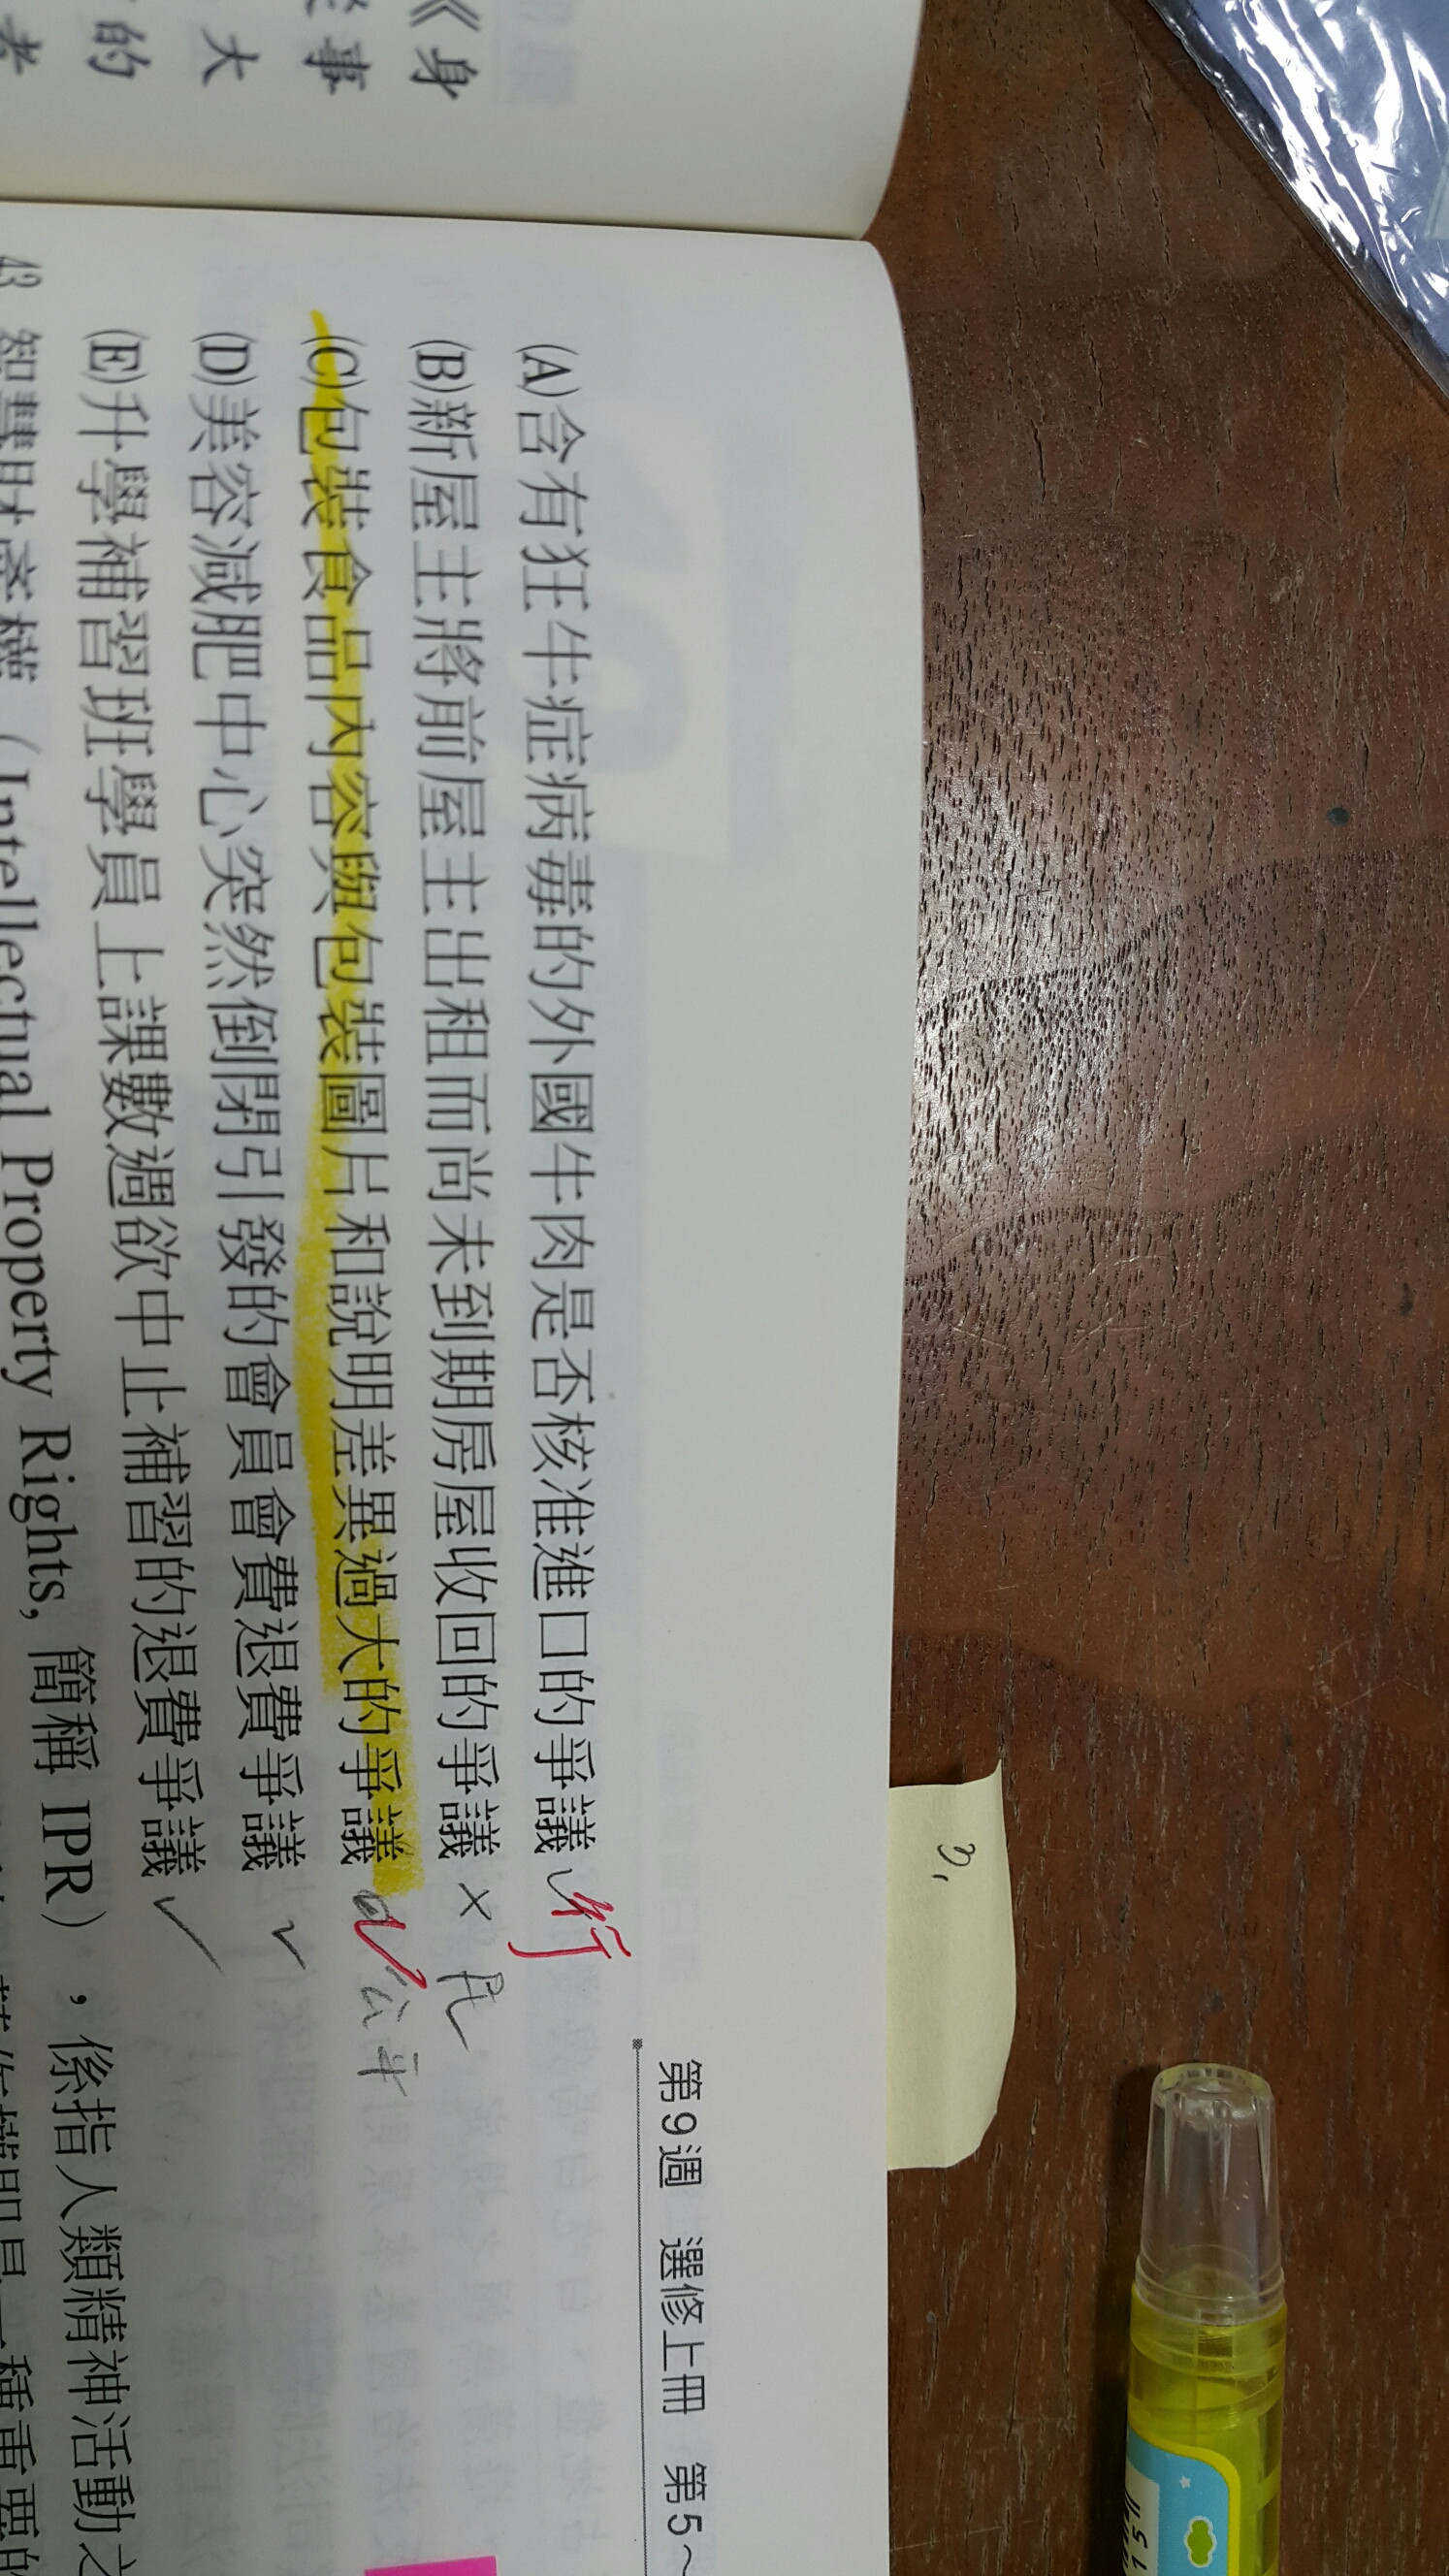 《身
事
大
的
第9週 選修上冊 第5～
(A)含有狂牛症病毒的外國牛肉是否核准進口的爭議 行
(B)新屋主將前屋主出租而尚未到期房屋收回的爭議 × 民
(C)包裝食品內容與包裝圖片和說明差異過大的爭議 公平
(D)美容減肥中心突然倒閉引發的會員會費退費爭議 ✓
(E)升學補習班學員上課數週欲中止補習的退費爭議 ✓
43 智慧財產權（Intellectual Property Rights, 簡稱 IPR），係指人類精神活動之
一種重要的